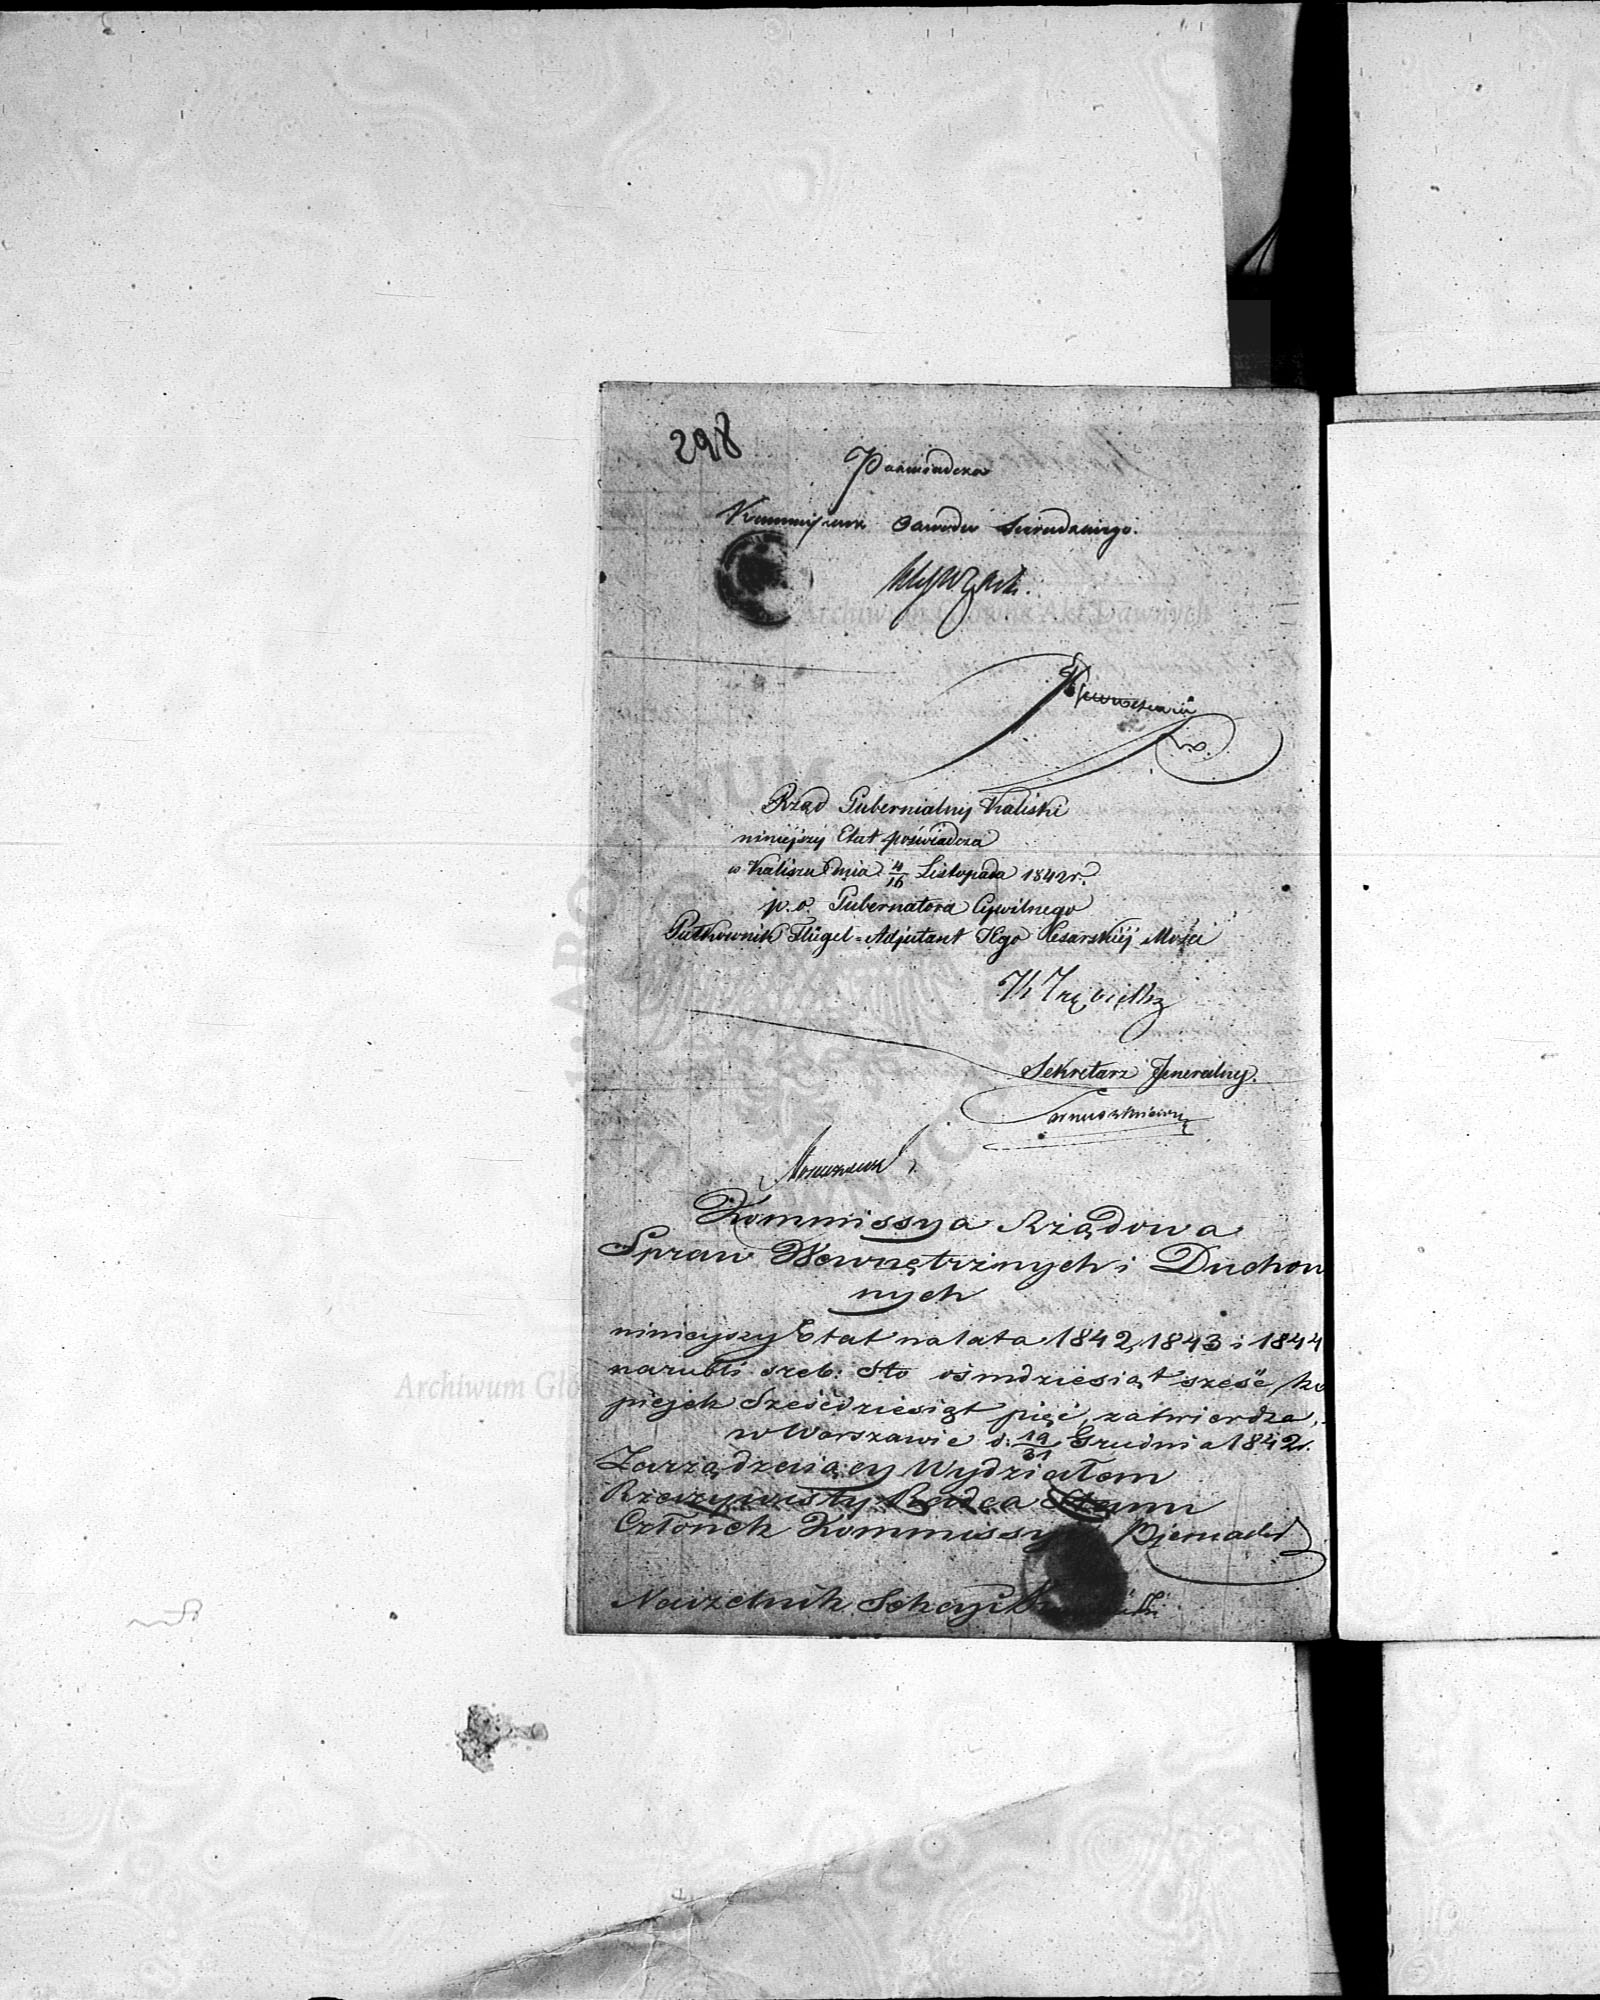 298
Poświadcza
Kommissarz Obwodu Sieradzkiego.
Rząd Gubernialny Kaliski
niniejszy Etat poświadcza
w Kaliszu dnia 4/16 Listopada 1842 r.
p. o. Gubernatora Cywilnego
Pułkownik Flügel-Adjutant Jego Cesarskiej Mości
Sekretarz Jeneralny.
Kommissya Rządowa
Spraw Wewnętrznych i Duchow
nych
niniejszy Etat na lata 1842, 1843 i 1844
na rubli sreb: Sto ośmdziesiąt sześć ko
piejek Sześćdziesiąt pięć, zatwierdza,
w Warszawie d. 19/31 Grudnia 1842 r.
Zarządzający Wydziałem
Rzeczywisty Radca Stanu
Członek Kommissyi
Naczelnik Sekcyi
Archiwum Główne Akt Dawnych